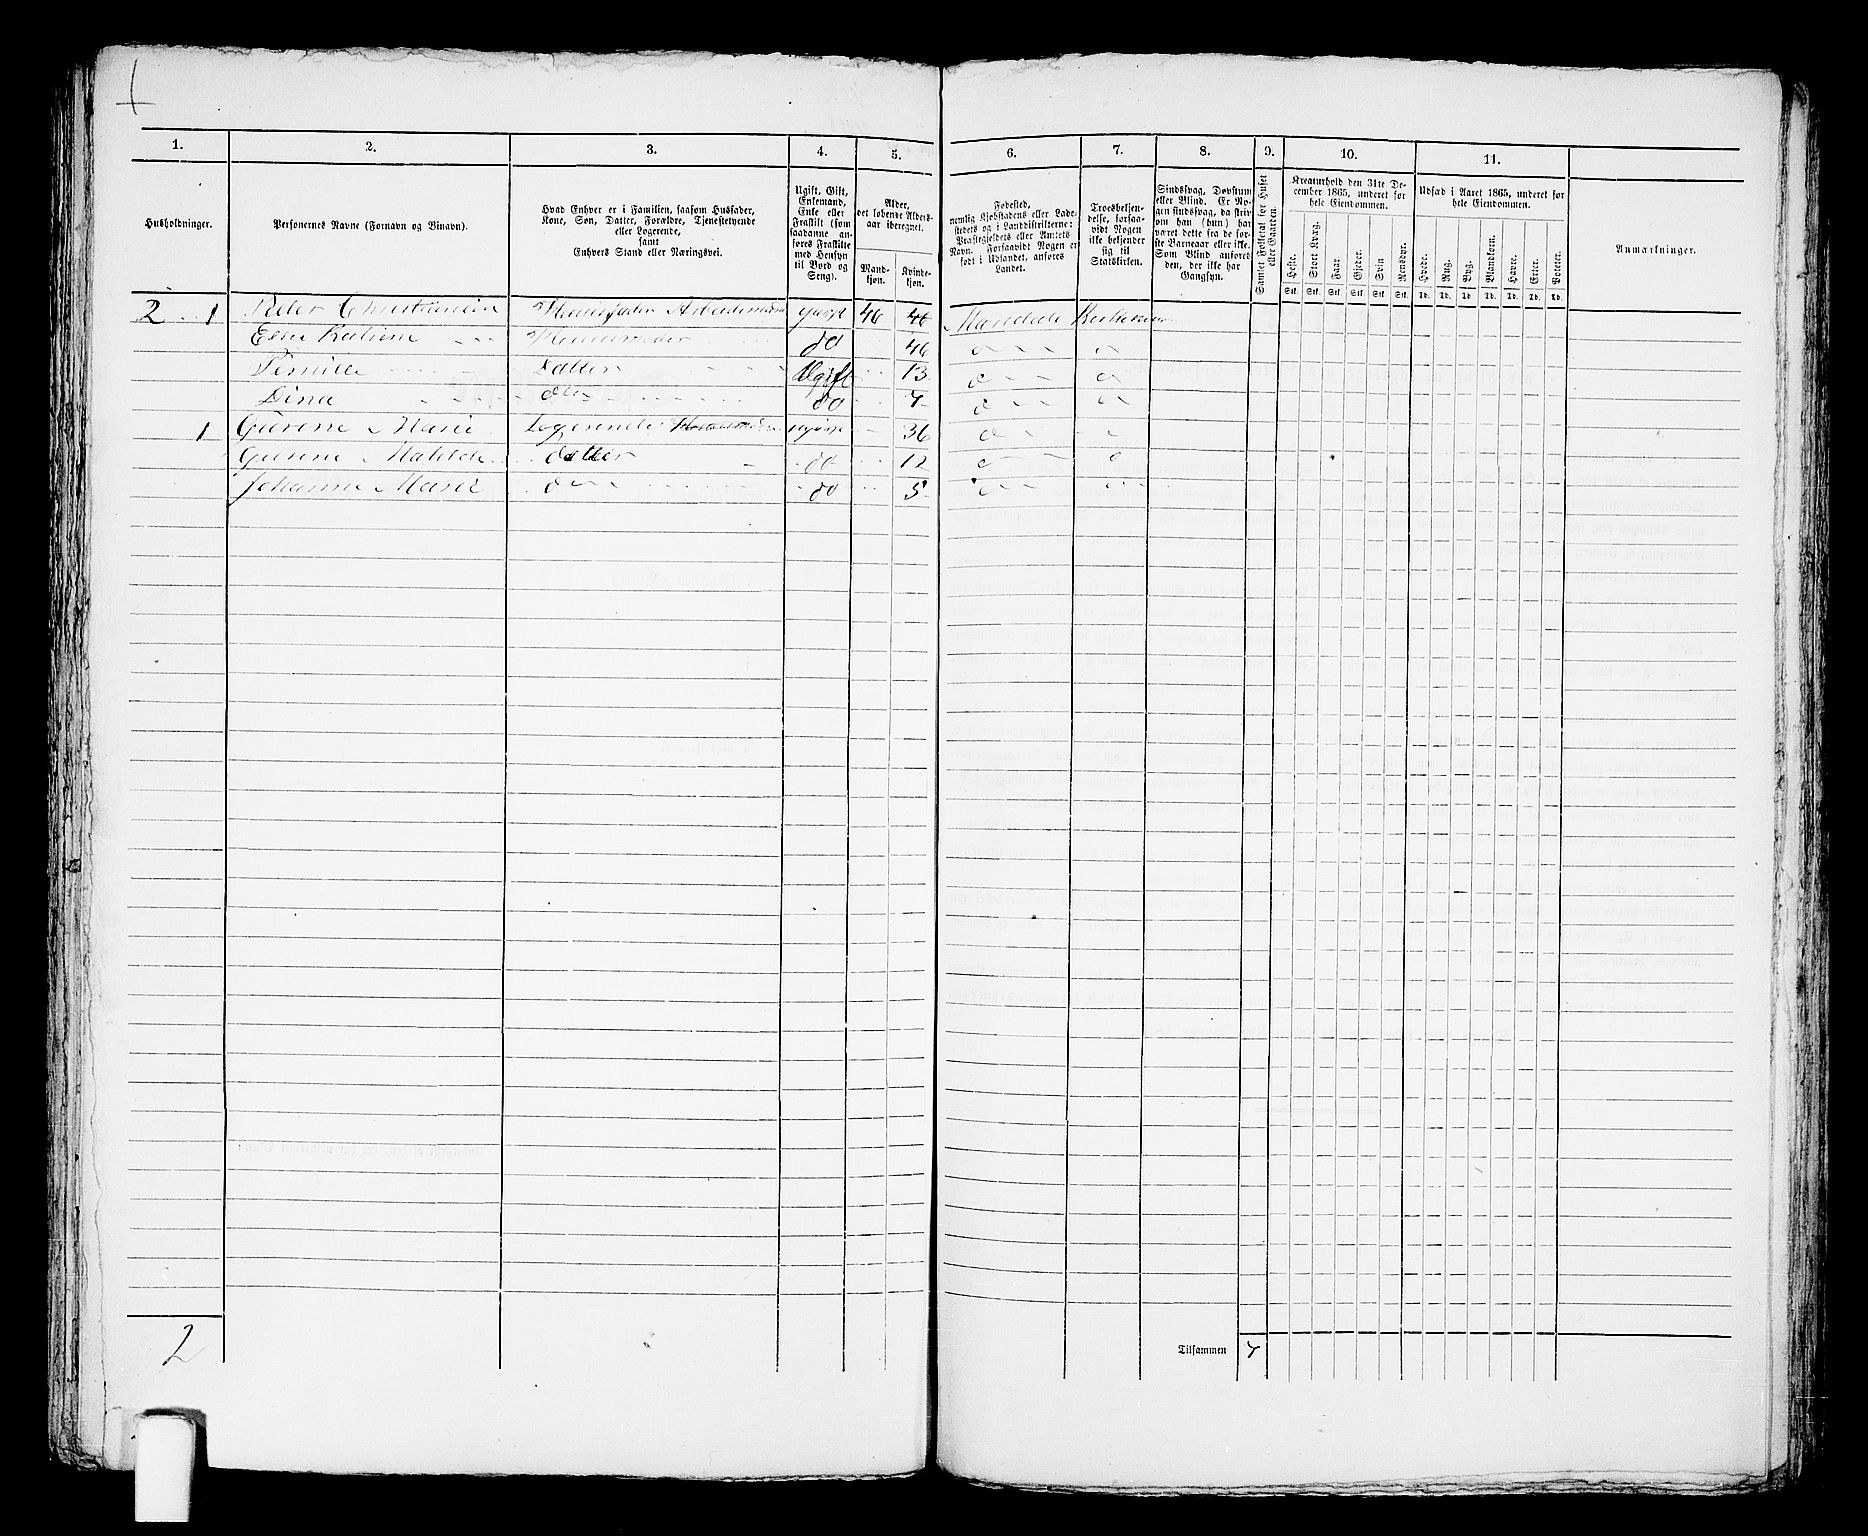 1.
2.
3.
4.
5.
6.
7.
8.
9.
10.
11.
Husholdninger.
Personernes Navne (Fornavn og Binavn).
Hvad Enhver er i Familien, saasom Husfader,
Kone, Søn, Datter, Forældre, Tjenestetyende
eller Logerende,
samt
Enhvers Stand eller Næringsvei.
Ugift, Gift,
Enkemand,
Enke eller
Fraskilt (som
saadanne an-
føres Fraskilte
med Hensyn
til Bord og
Seng).
Alder,
det løbende Alders-
aar iberegnet.
Mand-
kjøn.
Kvinde-
kjøn.
Fødested,
nemlig Kjøbstadens eller Lade-
stedets og i Landdistrikterne:
Præstegjeldets eller Amtets
Navn. Forsaavidt Nogen er
født i Udlandet, anføres
Landet.
Troesbekjen-
delse, forsaa-
vidt Nogen
ikke bekjender
sig til
Statskirken.
Sindssvag, Døvstum
eller Blind. Er No-
gen sindssvag, da skriv
om han (hun) har
været dette fra de før-
ste Barneaar eller ikke.
Som Blind anføres
den, der ikke har
Gangsyn.
Samlet Folketal for Huset
eller Gaarden.
Kreaturhold den 31te De-
cember 1865, underet for
hele Eiendommen.
Heste. Stort Kvæg. Faar. Gjeder. Svin Rensdyr.
Stk. Stk. Stk. Stk. Stk. Stk.
Udsæd i Aaret 1865, underet for
hele Eiendommen.
Hvede. Rug. Byg. Blandkorn. Havre. Erter. Poteter.
Td. Td. Td. Td. Td. Td. Td.
Anmærkninger.
2 1 Peder Christiansen Huusfader Arbeidsmand 46 46 Mandal
Katrine do 46
Datter Ugift 13
Dina do 7
1 Marie Logerende 36
Datter do 12
Johanne Marie do 5
2
Tilsammen 7